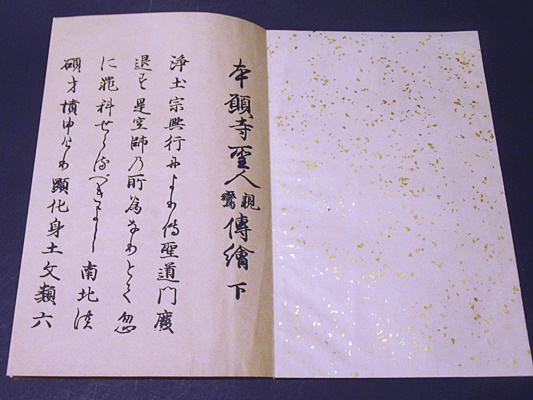 本願寺聖人親鸞傳繪 下
浄土宗興行によりて聖道門廢
退す是空師の所為なりとて忽
に罪科せらるべきよし南北の
碩才憤申けり顯化身土文類六